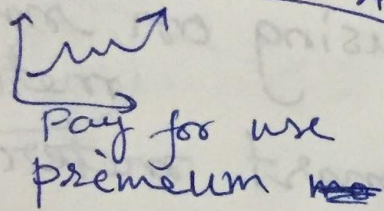 Pay for use
premeum